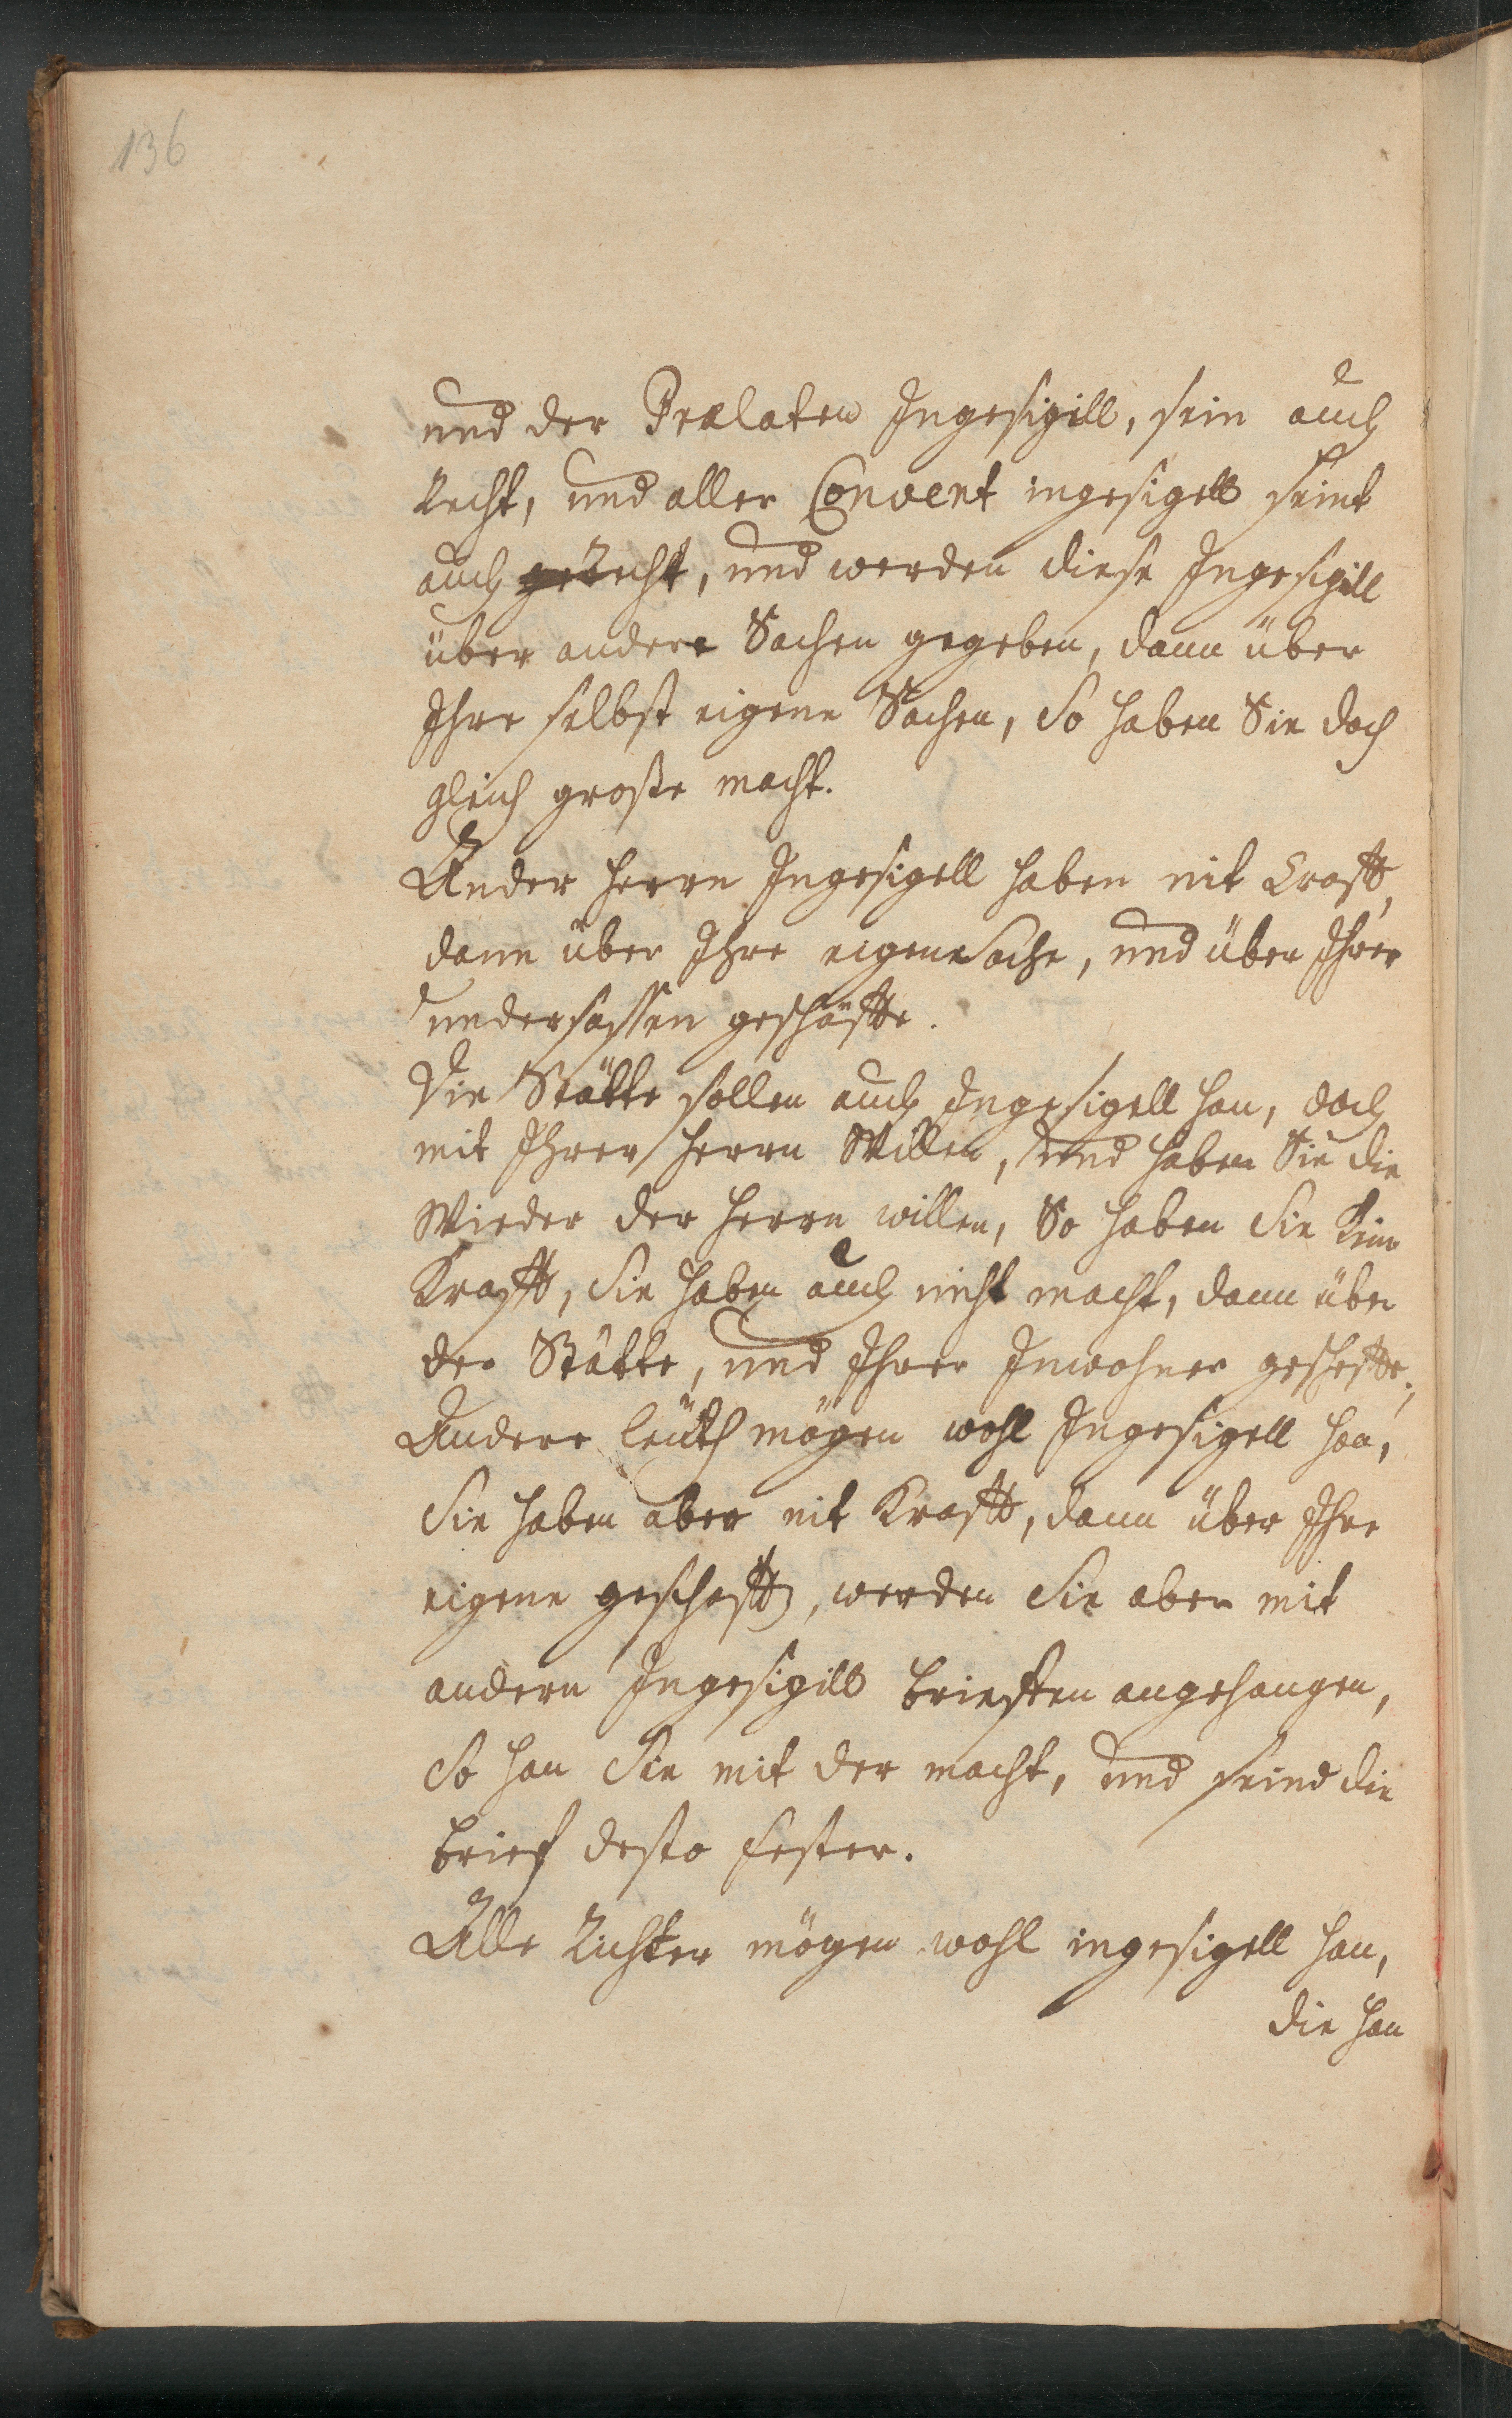 136
und der Prælaten Ingesigill, sein auch
Recht, und aller Convent ingesigell seint
auch geRecht, und werden diese Ingesigill
über andere Sachen gegeben, dann über
Ihre selbst eigene Sachen, So haben Sie doch
gleich große macht.
Ander Herrn Ingesigell haben nit Crafft,
dann über Ihre eigene Sache, und über Ihrer
undersassen geschäffte.
Die Stätte sollen auch Ingesigell han, doch
mit Ihrer Herrn Willen, und haben Sie die
Wieder der Herrn willen, So haben Sie Kein
Krafft, Sie haben auch nicht macht, dann über
der Stätte, und Ihrer Inwohner gescheffte,
Andere leüth mögen wohl Ingesigell han,
Sie haben aber nit Krafft, dann über Ihre
eigene geschefft, werden Sie aber mit
andern Ingesigill brieffen angehangen,
So han Sie mit der macht, und seind die
brief desto fester.
Alle Richter mögen wohl ingesigell han,
die han